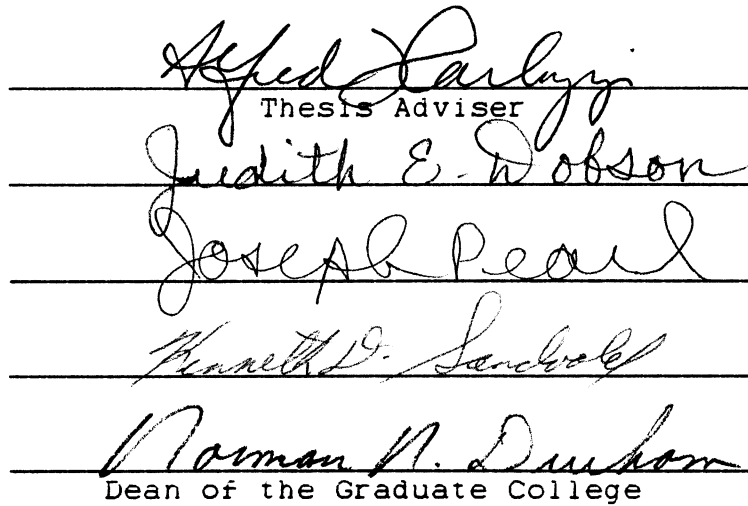 Alfred Carlozzi
Thesis Adviser
Judith E. Dobson
Joseph Pearl
Kenneth D. Sandvold
Norman N. Durham
Dean of the Graduate College